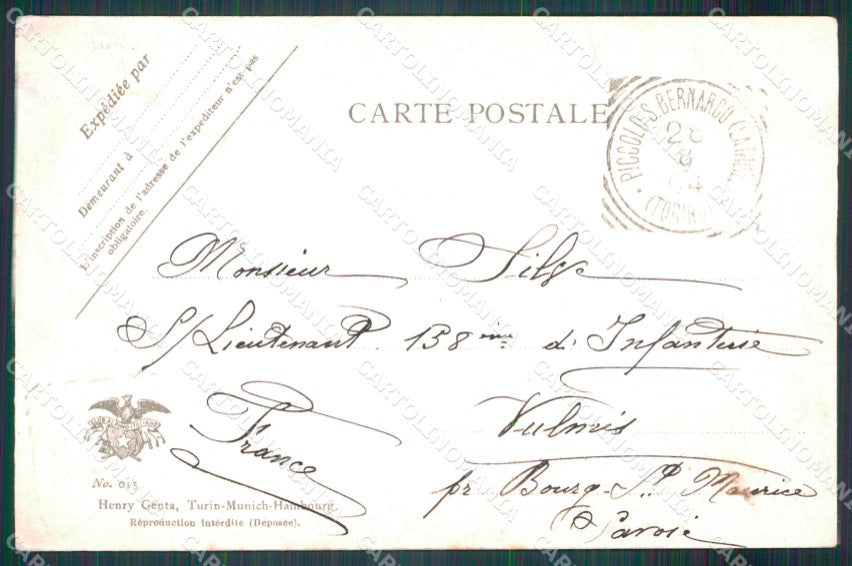 Expédiée par
Demeurant à
L'inscription de l'adresse de l'expéditeur n'est pas
obligatoire.
CARTE POSTALE
PICCOLO S. BERNARDO
(TORINO)
Monsieur
S/Lieutenant 158 ème d'Infanterie
Vulmis
France
pr Bourg-St Maurice
Savoie
No. 015
Henry Genta, Turin-Munich-Hambourg.
Réproduction Intérdite (Déposée).
CARTOLINOMANIA